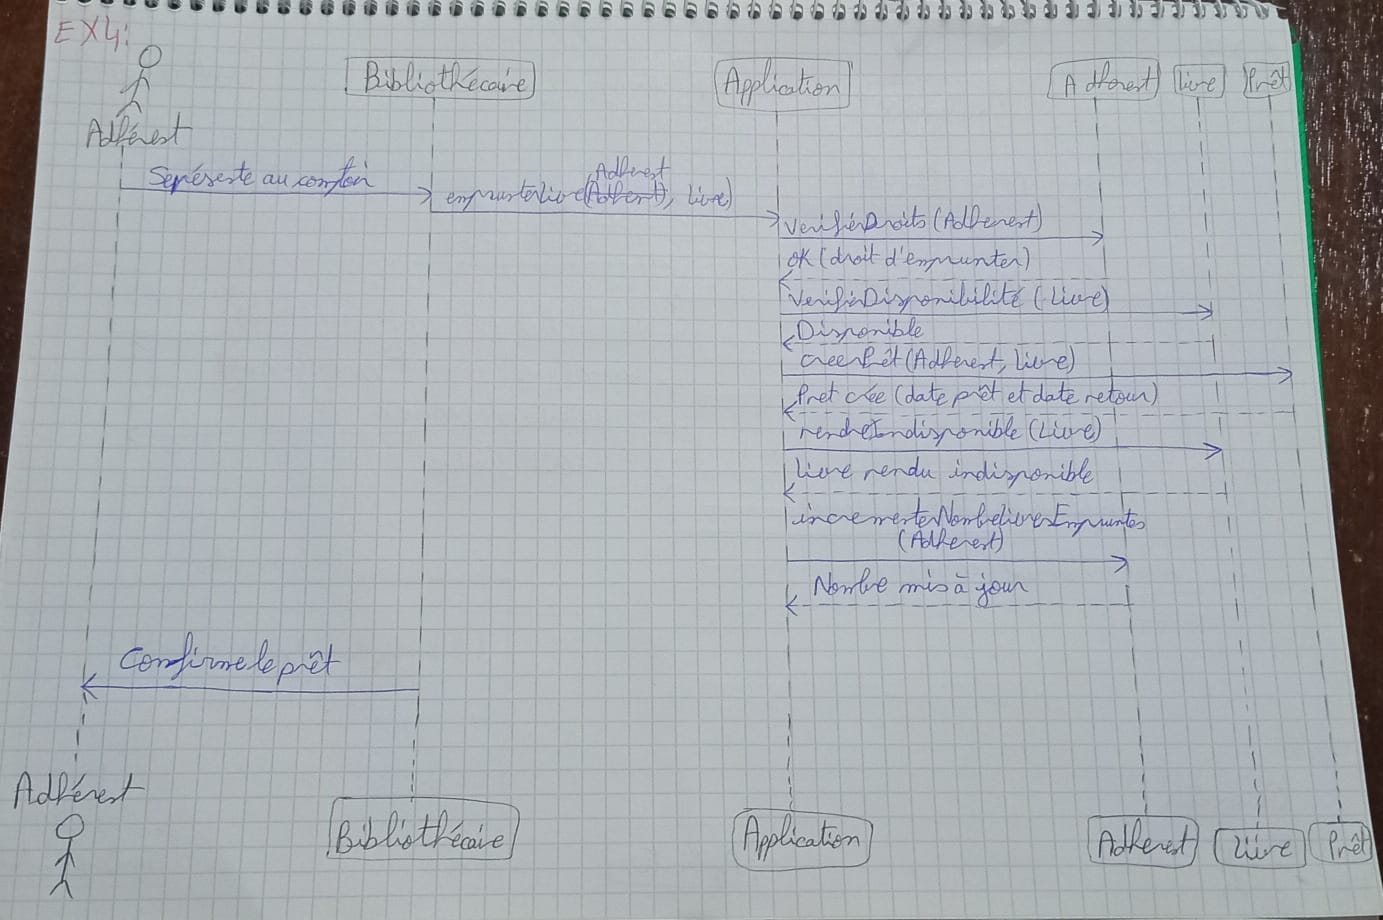 EX4:
Bibliothécaire
Application
Adherent
Livre
Prêt
Adhérent
Se présente au comptoir
Adherent
emprunterLivre(Adherent, Livre)
VerifierDroits (Adherent)
OK (droit d'emprunter)
VerifierDisponibilité (Livre)
Disponible
creerPrêt (Adherent, Livre)
Pret crée (date prêt et date retour)
rendreIndisponible (Livre)
Livre rendu indisponible
incrementerNombreLivresEmpruntes
(Adherent)
Nombre mis à jour
Confirme le prêt
Adhérent
Bibliothécaire
Application
Adherent
Livre
Prêt